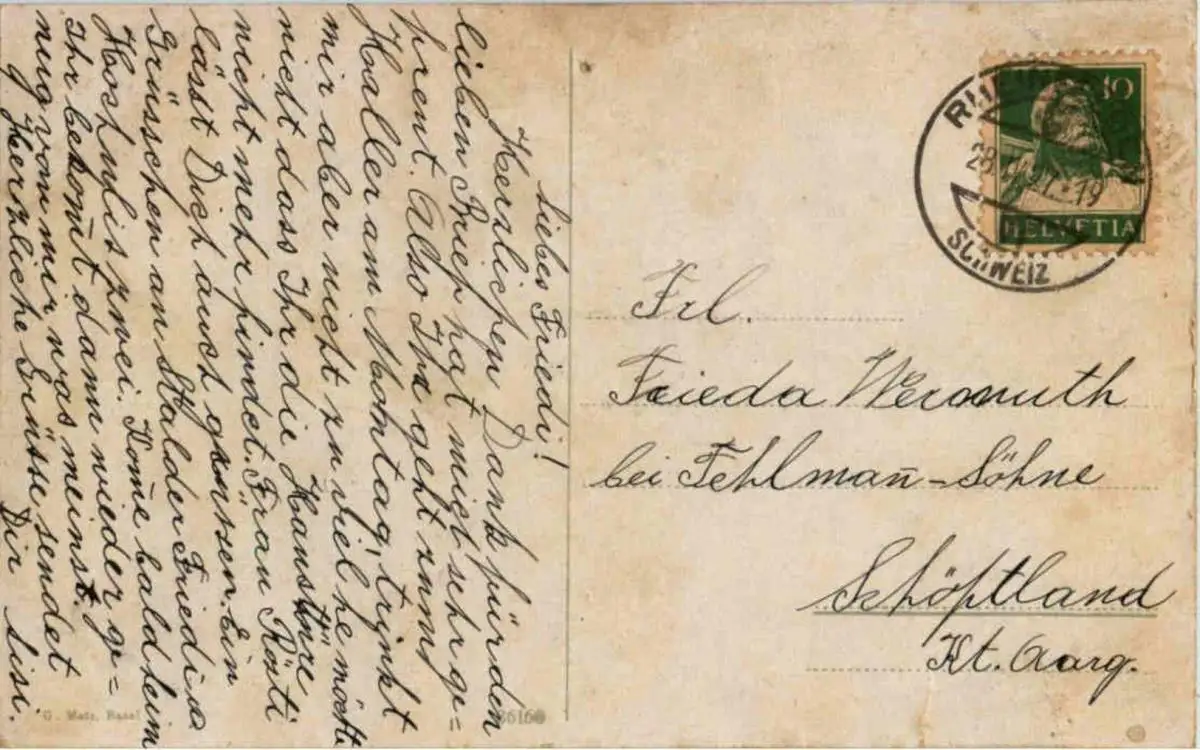 Liebes Friedi!
Herzlichen Dank für den
lieben Brief hat mich sehr ge=
freut. Also Ihr geht zum
Haller am Montag, trinkt
mir aber nicht zu viel he möchte
nicht dass Ihr die Haustüre
nicht mehr findet. Frau Rösti
lässt Dich auch grüssen. Ein
Grüsschen an Stalder Friedi u
Hoschulis zwei. Kom̄e bald heim
Ihr bekom̄t dann wieder ge=
nug von mir was meinst.
Herzliche Grüsse sendet
Dir Lisi.
G. Metz, Basel
10
28. 21-19
HELVETIA
SCHWEIZ
Frl.
Frieda Wermuth
bei Fehlman̄-Söhne
Schöftland
Kt. Aarg.